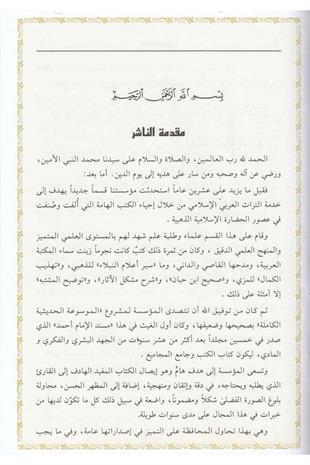 بسم الله الرحمن الرحيم
مقدمة الناشر
الحمد لله رب العالمين، والصلاة والسلام على سيدنا محمد النبي الأمين،
ورضي عن آله وصحبه ومن سار على هديه إلى يوم الدين. أما بعد:
فقبل ما يزيد على عشرين عاماً استحدثت مؤسستنا قسماً جديداً يهدف إلى
خدمة التراث العربي الإسلامي من خلال إحياء الكتب الهامة التي أُلفت وصُنفت
في عصور الحضارة الإسلامية الذهبية .
وقام على هذا القسم علماء وطلبة علم شهد لهم بالمستوى العلمي المتميز
والمنهج العلمي الدقيق ، وكان من ثمرة ذلك كتبٌ كانت نجوماً زينت سماء المكتبة
العربية، ومدحها القاصي والداني، وما «سير أعلام النبلاء» للذهبي، و«تهذيب
الكمال» للمزي، و«صحيح ابن حبان»، و«شرح مشكل الآثار»، و«توضيح المشتبه»
إلا أمثلة على ذلك .
ثم كان من توفيق الله أن تتصدى المؤسسة لمشروع «الموسوعة الحديثية
الكاملة» بصحيحها وضعيفها، وكان أول الغيث في هذا «مسند الإمام أحمد» الذي
صدر في خمسين مجلداً بعد أكثر من عشر سنوات من الجهد البشري والفكري و
المادي، ليكون كتاب الكتب وجامع المجاميع .
وتسعى المؤسسة إلى هدف هامّ وهو إيصال الكتاب المفيد الهادف إلى القارئ
الذي يطلبه ويحتاجه، في دقة وإتقان ومنهجية، إضافة إلى المظهر الحسن، محاولة
بلوغ الصورة الفضلى شكلاً ومضموناً، واضعة في سبيل ذلك كل ما تكوّن لديها من
خبرات في هذا المجال على مدى سنوات طويلة.
وهي بهذا تحاول المحافظة على التميز في إصداراتها عامة، وفي ما يجب